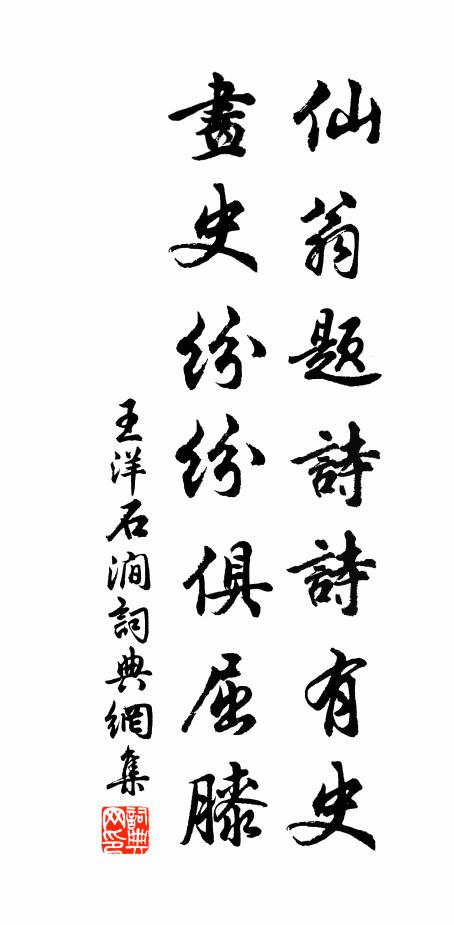 仙翁题詩詩有史
畫史紛紛俱屈膝
王洋石澗詞典網集
詞典网印